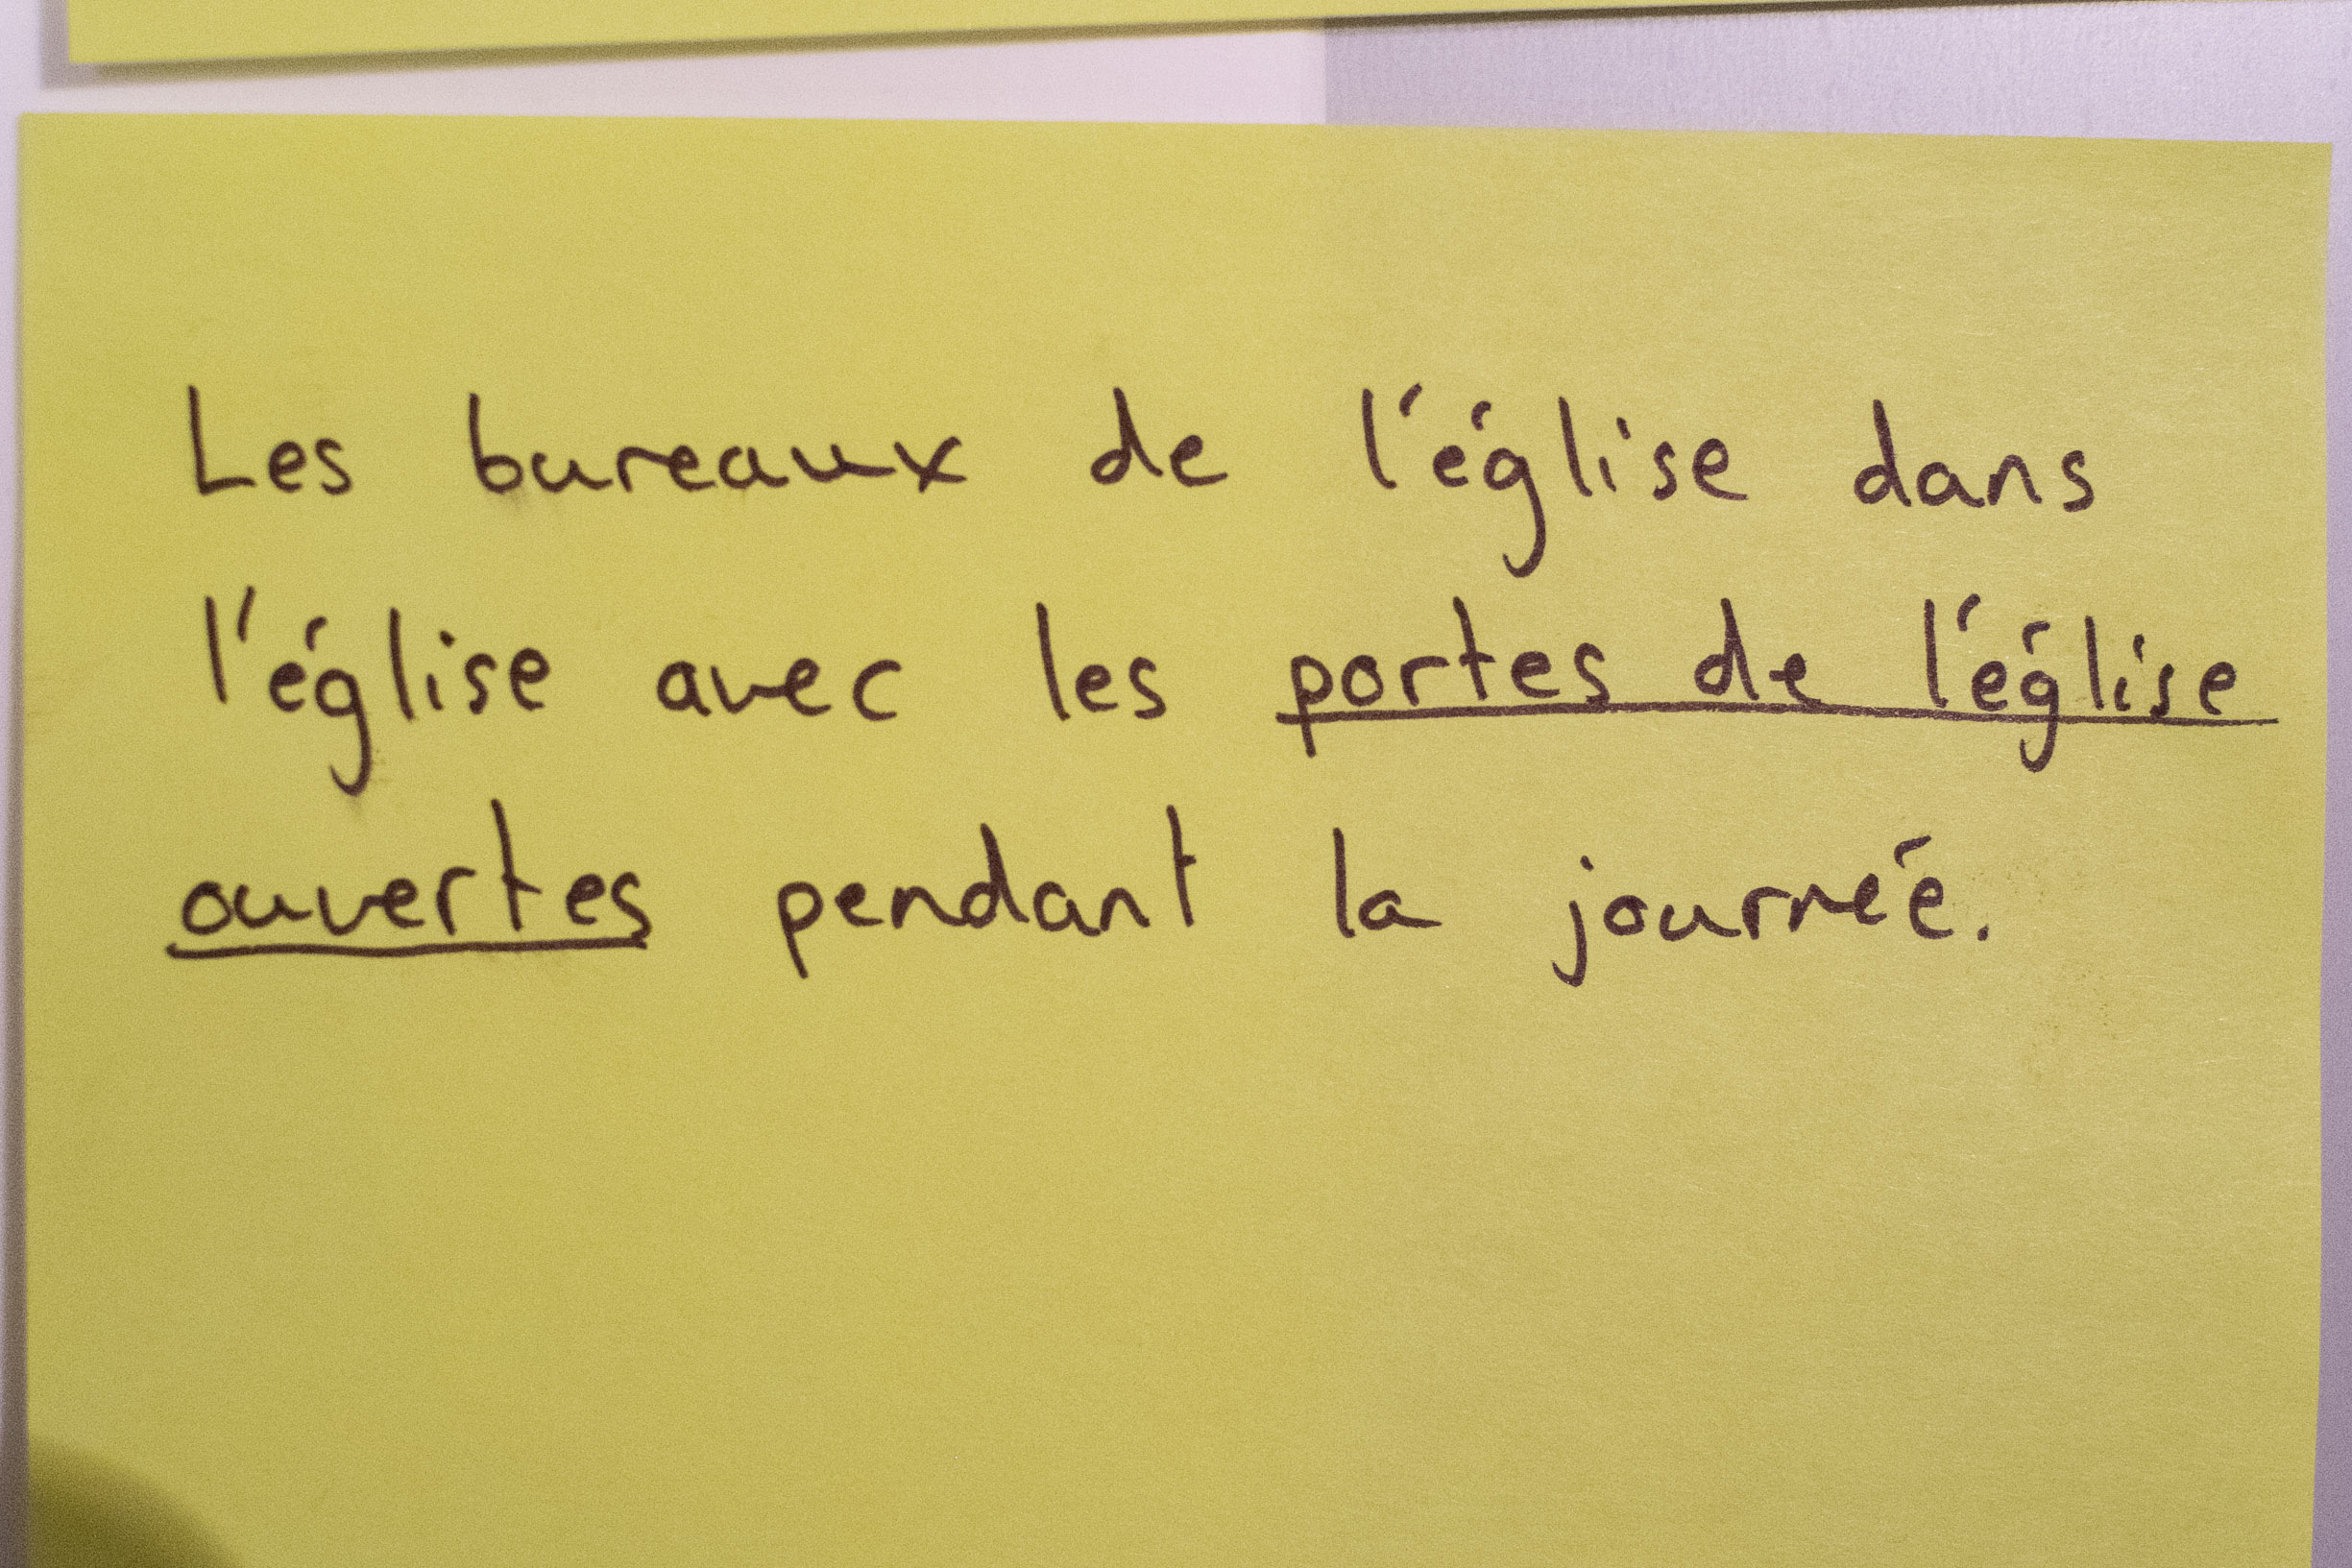 Les bureaux de l'église dans
l'église avec les portes de l'église
ouvertes pendant la journéé.